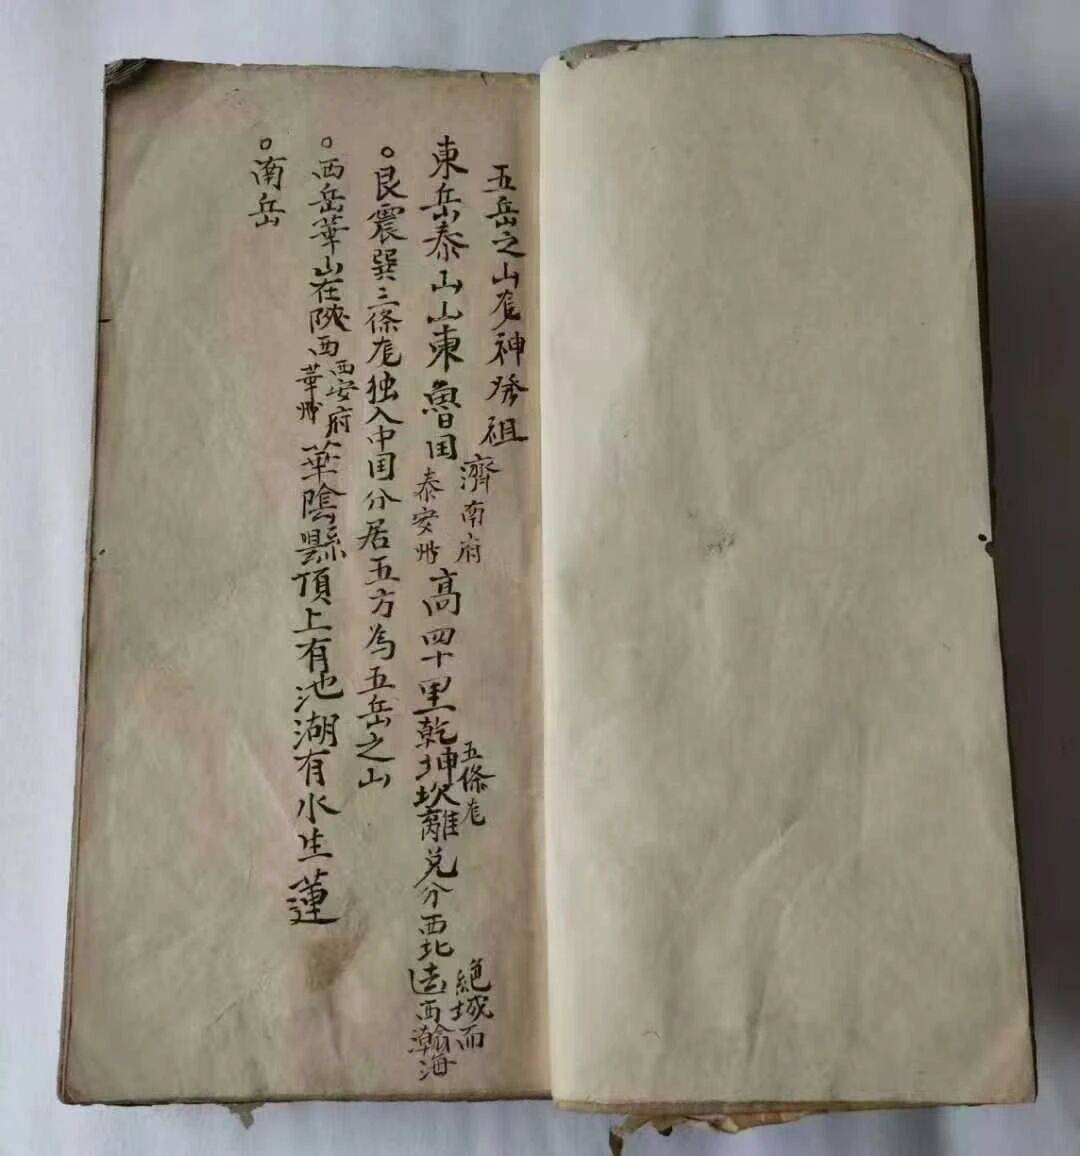 五岳之山龙神發祖
東岳泰山山東魯囯濟南府泰安州高四十里乾坤坎離兑五條龙分西北絶域而去西瀚海
○艮震巽三條龙独入中囯分居五方為五岳之山
○西岳華山在陝西西安府華州華陰縣頂上有池湖有水生蓮
○南岳